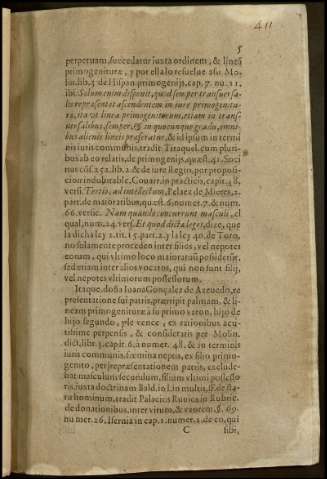 411
5
perpetuam, succedatur iuxta ordinem, & lineā
primogenituræ, y por ello lo resuelue assi Mo-
lin. lib. 3. de Hispan. primogenijs, cap. 7. nu. 11.
ibi. Solum enim disponit, quod semper transuersa-
lis repræsentet ascendentem in iure primogenitu-
ræ, ita vt linea primogenitorum, etiam in trans-
uersalibus semper, & in quocunque gradu, omni-
bus alienis lineis præferatur, & id ipsum in termi
nis iuris communis, tradit Tiraquel. cum pluri-
bus ab eo relatis, de primogenijs, quæst. 41. Soci
nus cōs. 252. lib. 2. & de iure Regio, per proposi-
tionem indubitabile. Couarr. in practicis, cap. 38.
vers. Tertio, ad intellectum, Pelaez de Mieres, 2.
part. de maioratibus, quæst. 6. numer. 7. & num.
66. versic. Nam quando concurrunt masculi, el
qual, num. 24. vers. Et quod dicta leges, dize, que
la dicha ley 2. tit. 15. part. 2. y la ley 40. de Toro,
no solamente proceden inter filios, vel nepotes
eorum, qui vltimo loco maioratū possiderūt,
sed etiam inter alios vocatos, qui non sunt filij,
vel nepotes vltimorum possessorum.
Itaque doña Ioana Gonçalez de Azeuedo, re
presentatione sui patris, præripit palmam, & li-
neam primogenituræ à su primo varon, hijo de
hijo segundo, y le vence, ex rationibus acu-
tissime perpensis, & consideratis per Molin.
dict. lib. 3. capit. 6. à numer. 48. & in terminis
iuris communis, fœmina neptis, ex filio primo-
genito, per repræsentationem patris, exclude-
bat masculum secundum, filium vltimi possesso-
ris, iuxta doctrinam Bald. in l. in multis, ff. de sta-
tu hominum, tradit Palacios Ruuios in Rubric.
de donationibus, inter virum, & vxorem. §. 69.
numer. 26. Isernia in cap. 1. numer. 2. de eo, qui
C sibi,